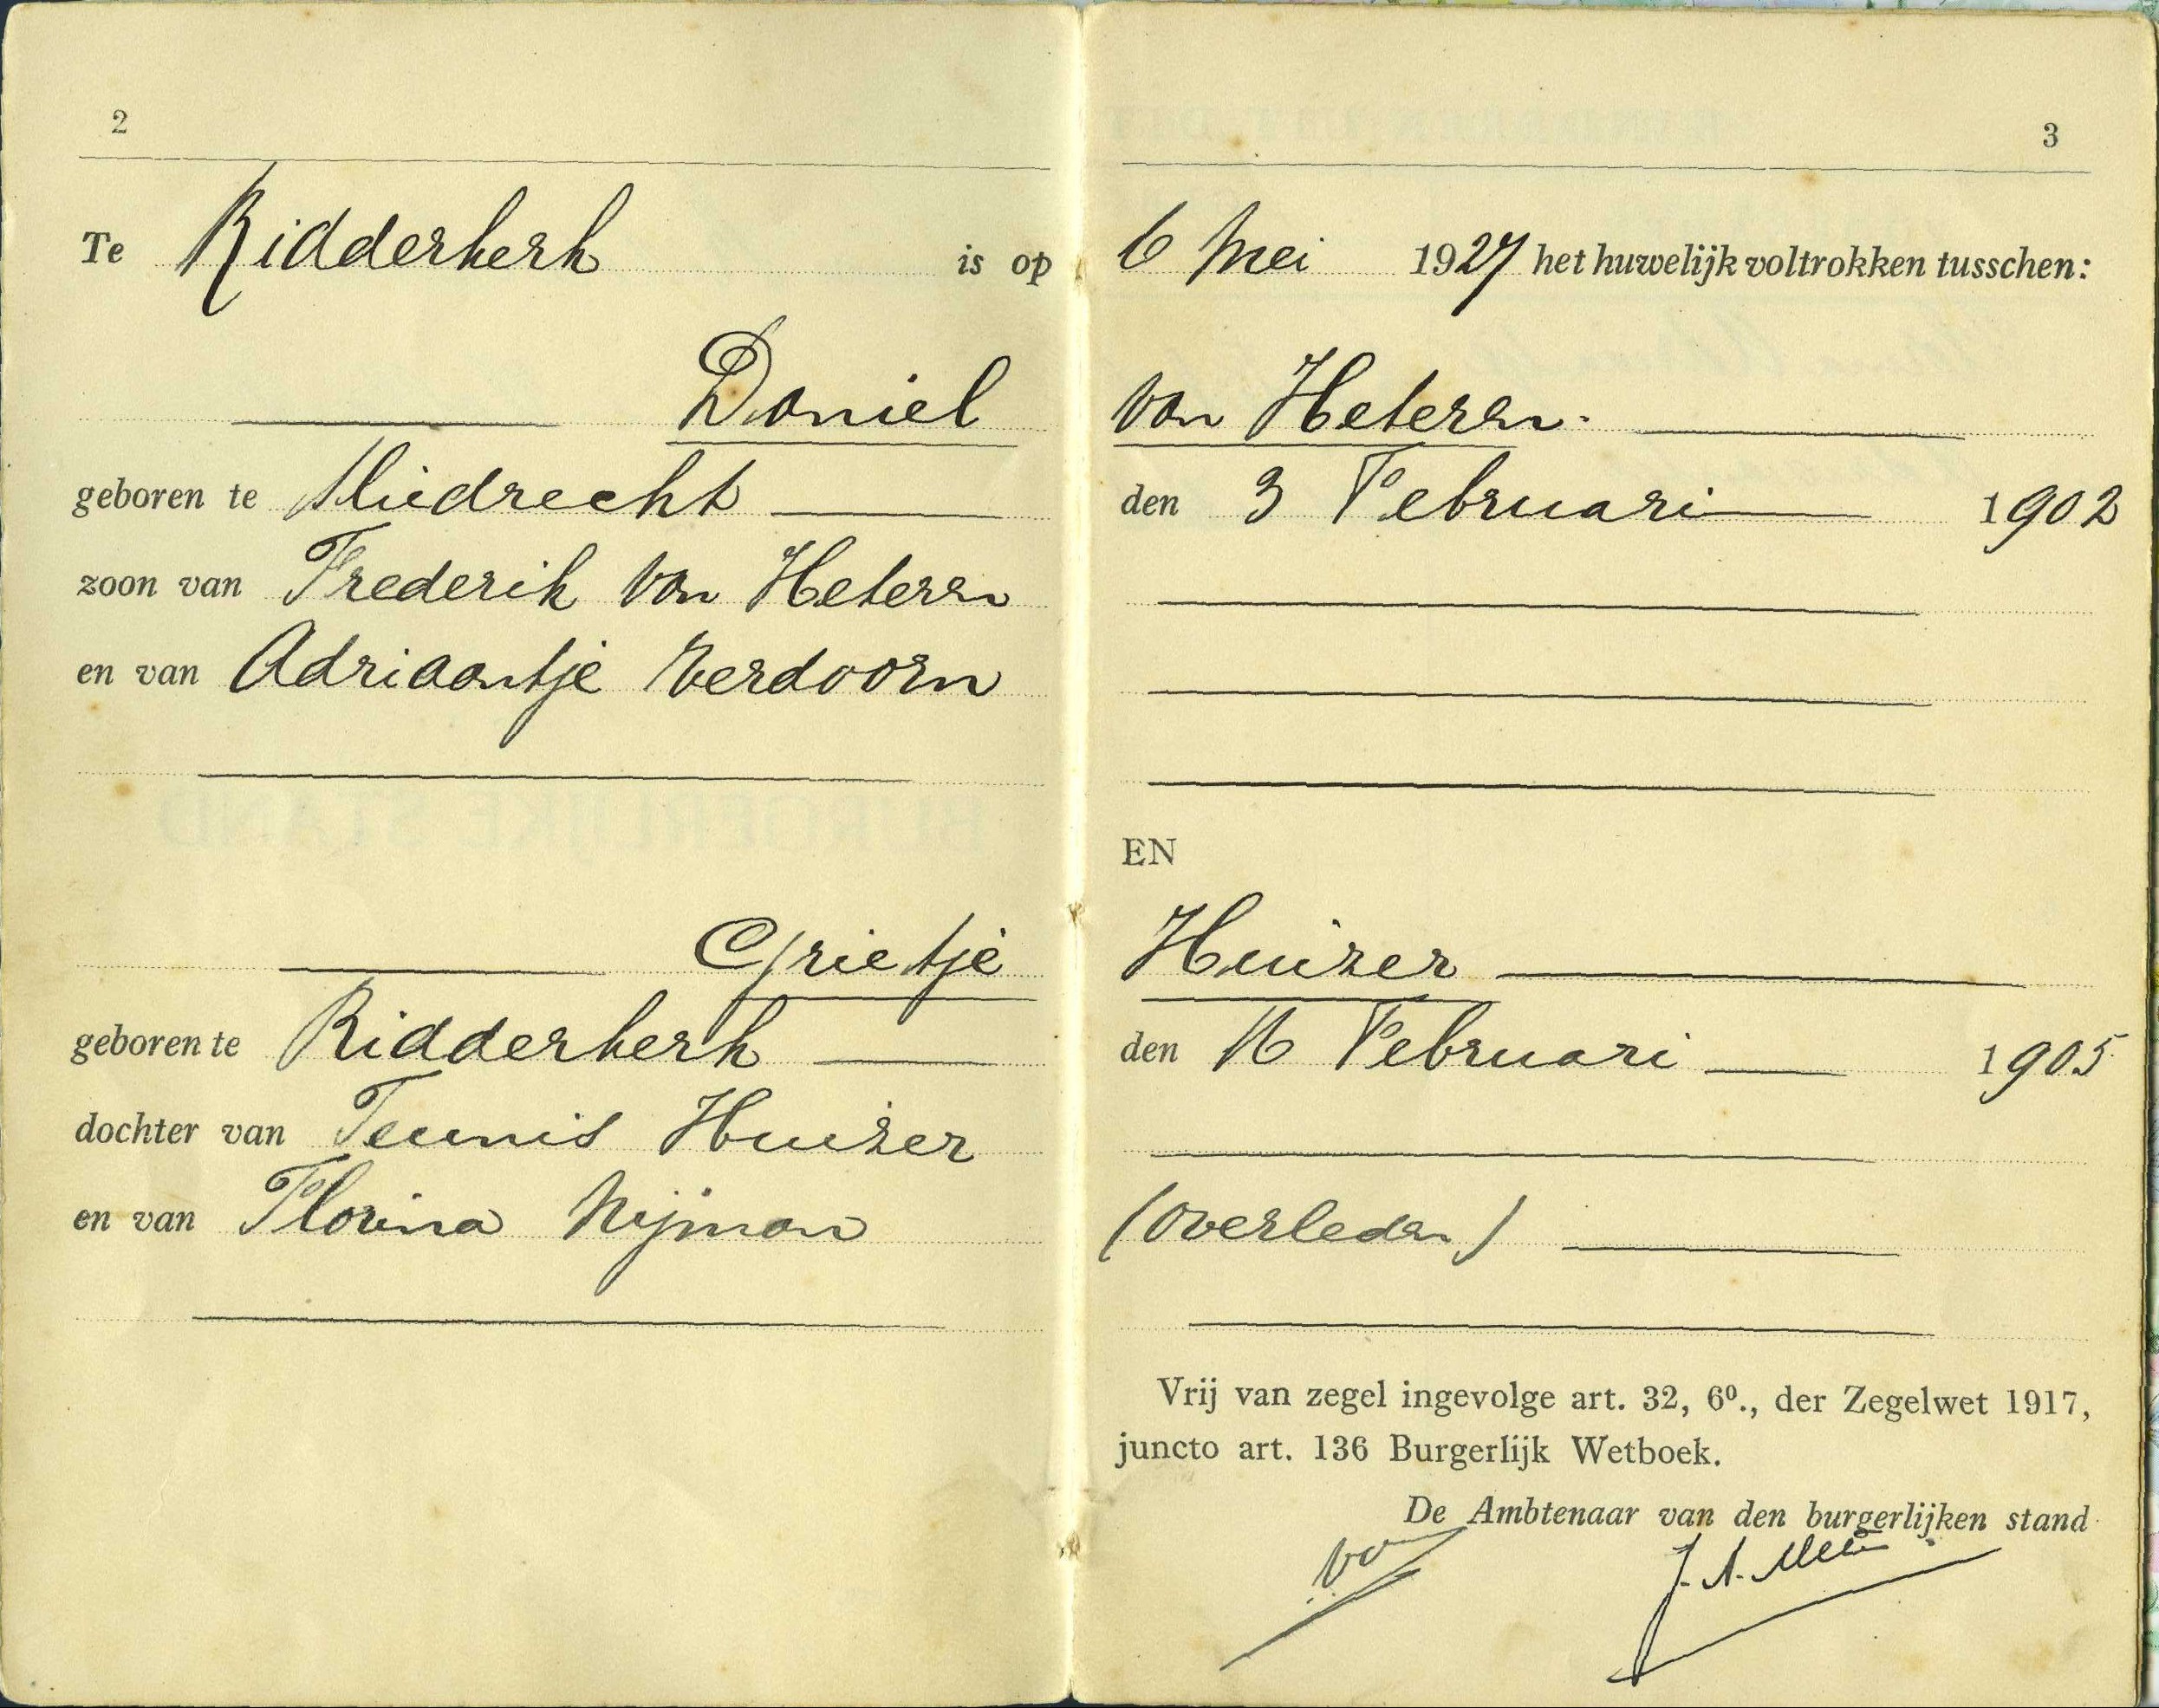 2
3
Te Ridderkerk is op 6 Mei 1927 het huwelijk voltrokken tusschen:
Daniel van Heteren.
geboren te Sliedrecht den 3 Februari 1902
zoon van Frederik van Heteren
en van Adriaantje Verdoorn
EN
Grietje Huizer
geboren te Ridderkerk den 16 Februari 1905
dochter van Teunis Huizer
en van Florina Nijman (overleden)
Vrij van zegel ingevolge art. 32, 6⁰., der Zegelwet 1917,
juncto art. 136 Burgerlijk Wetboek.
De Ambtenaar van den burgerlijken stand
J. A.